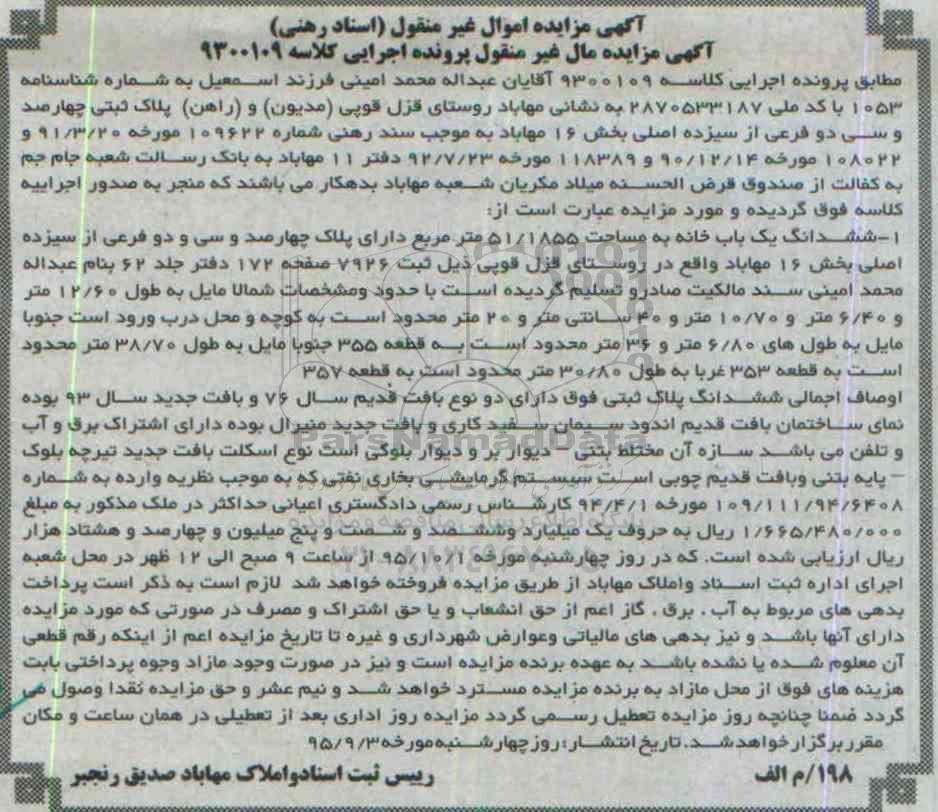 آگهی مزایده اموال غیر منقول (اسناد رهنی)
آگهی مزایده مال غیر منقول پرونده اجرایی کلاسه ۹۳۰۰۱۰۹
مطابق پرونده اجرایی کلاسه ۹۳۰۰۱۰۹ آقایان عبداله محمد امینی فرزند اسمعیل به شماره شناسنامه
۱۰۵۳ با کد ملی ۲۸۷۰۵۳۳۱۸۷ به نشانی مهاباد روستای قزل قوپی (مدیون) و (راهن) پلاک ثبتی چهارصد
و سی دو فرعی از سیزده اصلی بخش ۱۶ مهاباد به موجب سند رهنی شماره ۱۰۹۶۲۲ مورخه ۹۱/۳/۲۰ و
۱۰۸۰۲۲ مورخه ۹۰/۱۲/۱۴ و ۱۱۸۳۸۹ مورخه ۹۲/۷/۲۳ دفتر ۱۱ مهاباد به بانک رسالت شعبه جام جم
به کفالت از صندوق قرض الحسنه میلاد مکریان شعبه مهاباد بدهکار می باشند که منجر به صدور اجراییه
کلاسه فوق گردیده و مورد مزایده عبارت است از:
۱-ششدانگ یک باب خانه به مساحت ۵۱/۱۸۵۵ متر مربع دارای پلاک چهارصد و سی و دو فرعی از سیزده
اصلی بخش ۱۶ مهاباد واقع در روستای قزل قوپی ذیل ثبت ۷۹۲۶ صفحه ۱۷۲ دفتر جلد ۶۲ بنام عبداله
محمد امینی سند مالکیت صادرو تسلیم گردیده است با حدود ومشخصات شمالا مایل به طول ۱۲/۶۰ متر
و ۶/۴۰ متر و ۱۰/۷۰ متر و ۴۰ سانتی متر و ۲۰ متر محدود است به کوچه و محل درب ورود است جنوبا
مایل به طول های ۶/۸۰ متر و ۳۶ متر محدود است به قطعه ۳۵۵ جنوبا مایل به طول ۳۸/۷۰ متر محدود
است به قطعه ۳۵۳ غربا به طول ۳۰/۸۰ متر محدود است به قطعه ۳۵۷
اوصاف اجمالی ششدانگ پلاک ثبتی فوق دارای دو نوع بافت قدیم سال ۷۶ و بافت جدید سال ۹۳ بوده
نمای ساختمان بافت قدیم اندود سیمان سفید کاری و بافت جدید منیرال بوده دارای اشتراک برق و آب
و تلفن می باشد سازه آن مختلط بتنی – دیوار بر و دیوار بلوکی است نوع اسکلت بافت جدید تیرچه بلوک
– پایه بتنی وبافت قدیم چوبی است سیستم گرمایشی بخاری نفتی که به موجب نظریه وارده به شماره
۱۰۹/۱۱۱/۹۴/۶۴۰۸ مورخه ۹۴/۴/۱ کارشناس رسمی دادگستری اعیانی حداکثر در ملک مذکور به مبلغ
۱/۶۶۵/۴۸۰/۰۰۰ ریال به حروف یک میلیارد وششصد و شصت و پنج میلیون و چهارصد و هشتاد هزار
ریال ارزیابی شده است. که در روز چهارشنبه مورخه ۹۵/۱۰/۱ از ساعت ۹ صبح الی ۱۲ ظهر در محل شعبه
اجرای اداره ثبت اسناد واملاک مهاباد از طریق مزایده فروخته خواهد شد لازم است به ذکر است پرداخت
بدهی های مربوط به آب ، برق ، گاز اعم از حق انشعاب و یا حق اشتراک و مصرف در صورتی که مورد مزایده
دارای آنها باشد و نیز بدهی های مالیاتی وعوارض شهرداری و غیره تا تاریخ مزایده اعم از اینکه رقم قطعی
آن معلوم شده یا نشده باشد به عهده برنده مزایده است و نیز در صورت وجود مازاد وجوه پرداختی بابت
هزینه های فوق از محل مازاد به برنده مزایده مسترد خواهد شد و نیم عشر و حق مزایده نقدا وصول می
گردد ضمنا چنانچه روز مزایده تعطیل رسمی گردد مزایده روز اداری بعد از تعطیلی در همان ساعت و مکان
مقرر برگزار خواهد شد. تاریخ انتشار: روز چهارشنبه مورخه ۹۵/۹/۳
۱۹۸/م الف
رییس ثبت اسنادواملاک مهاباد صدیق رنجبر
ParsNamadData